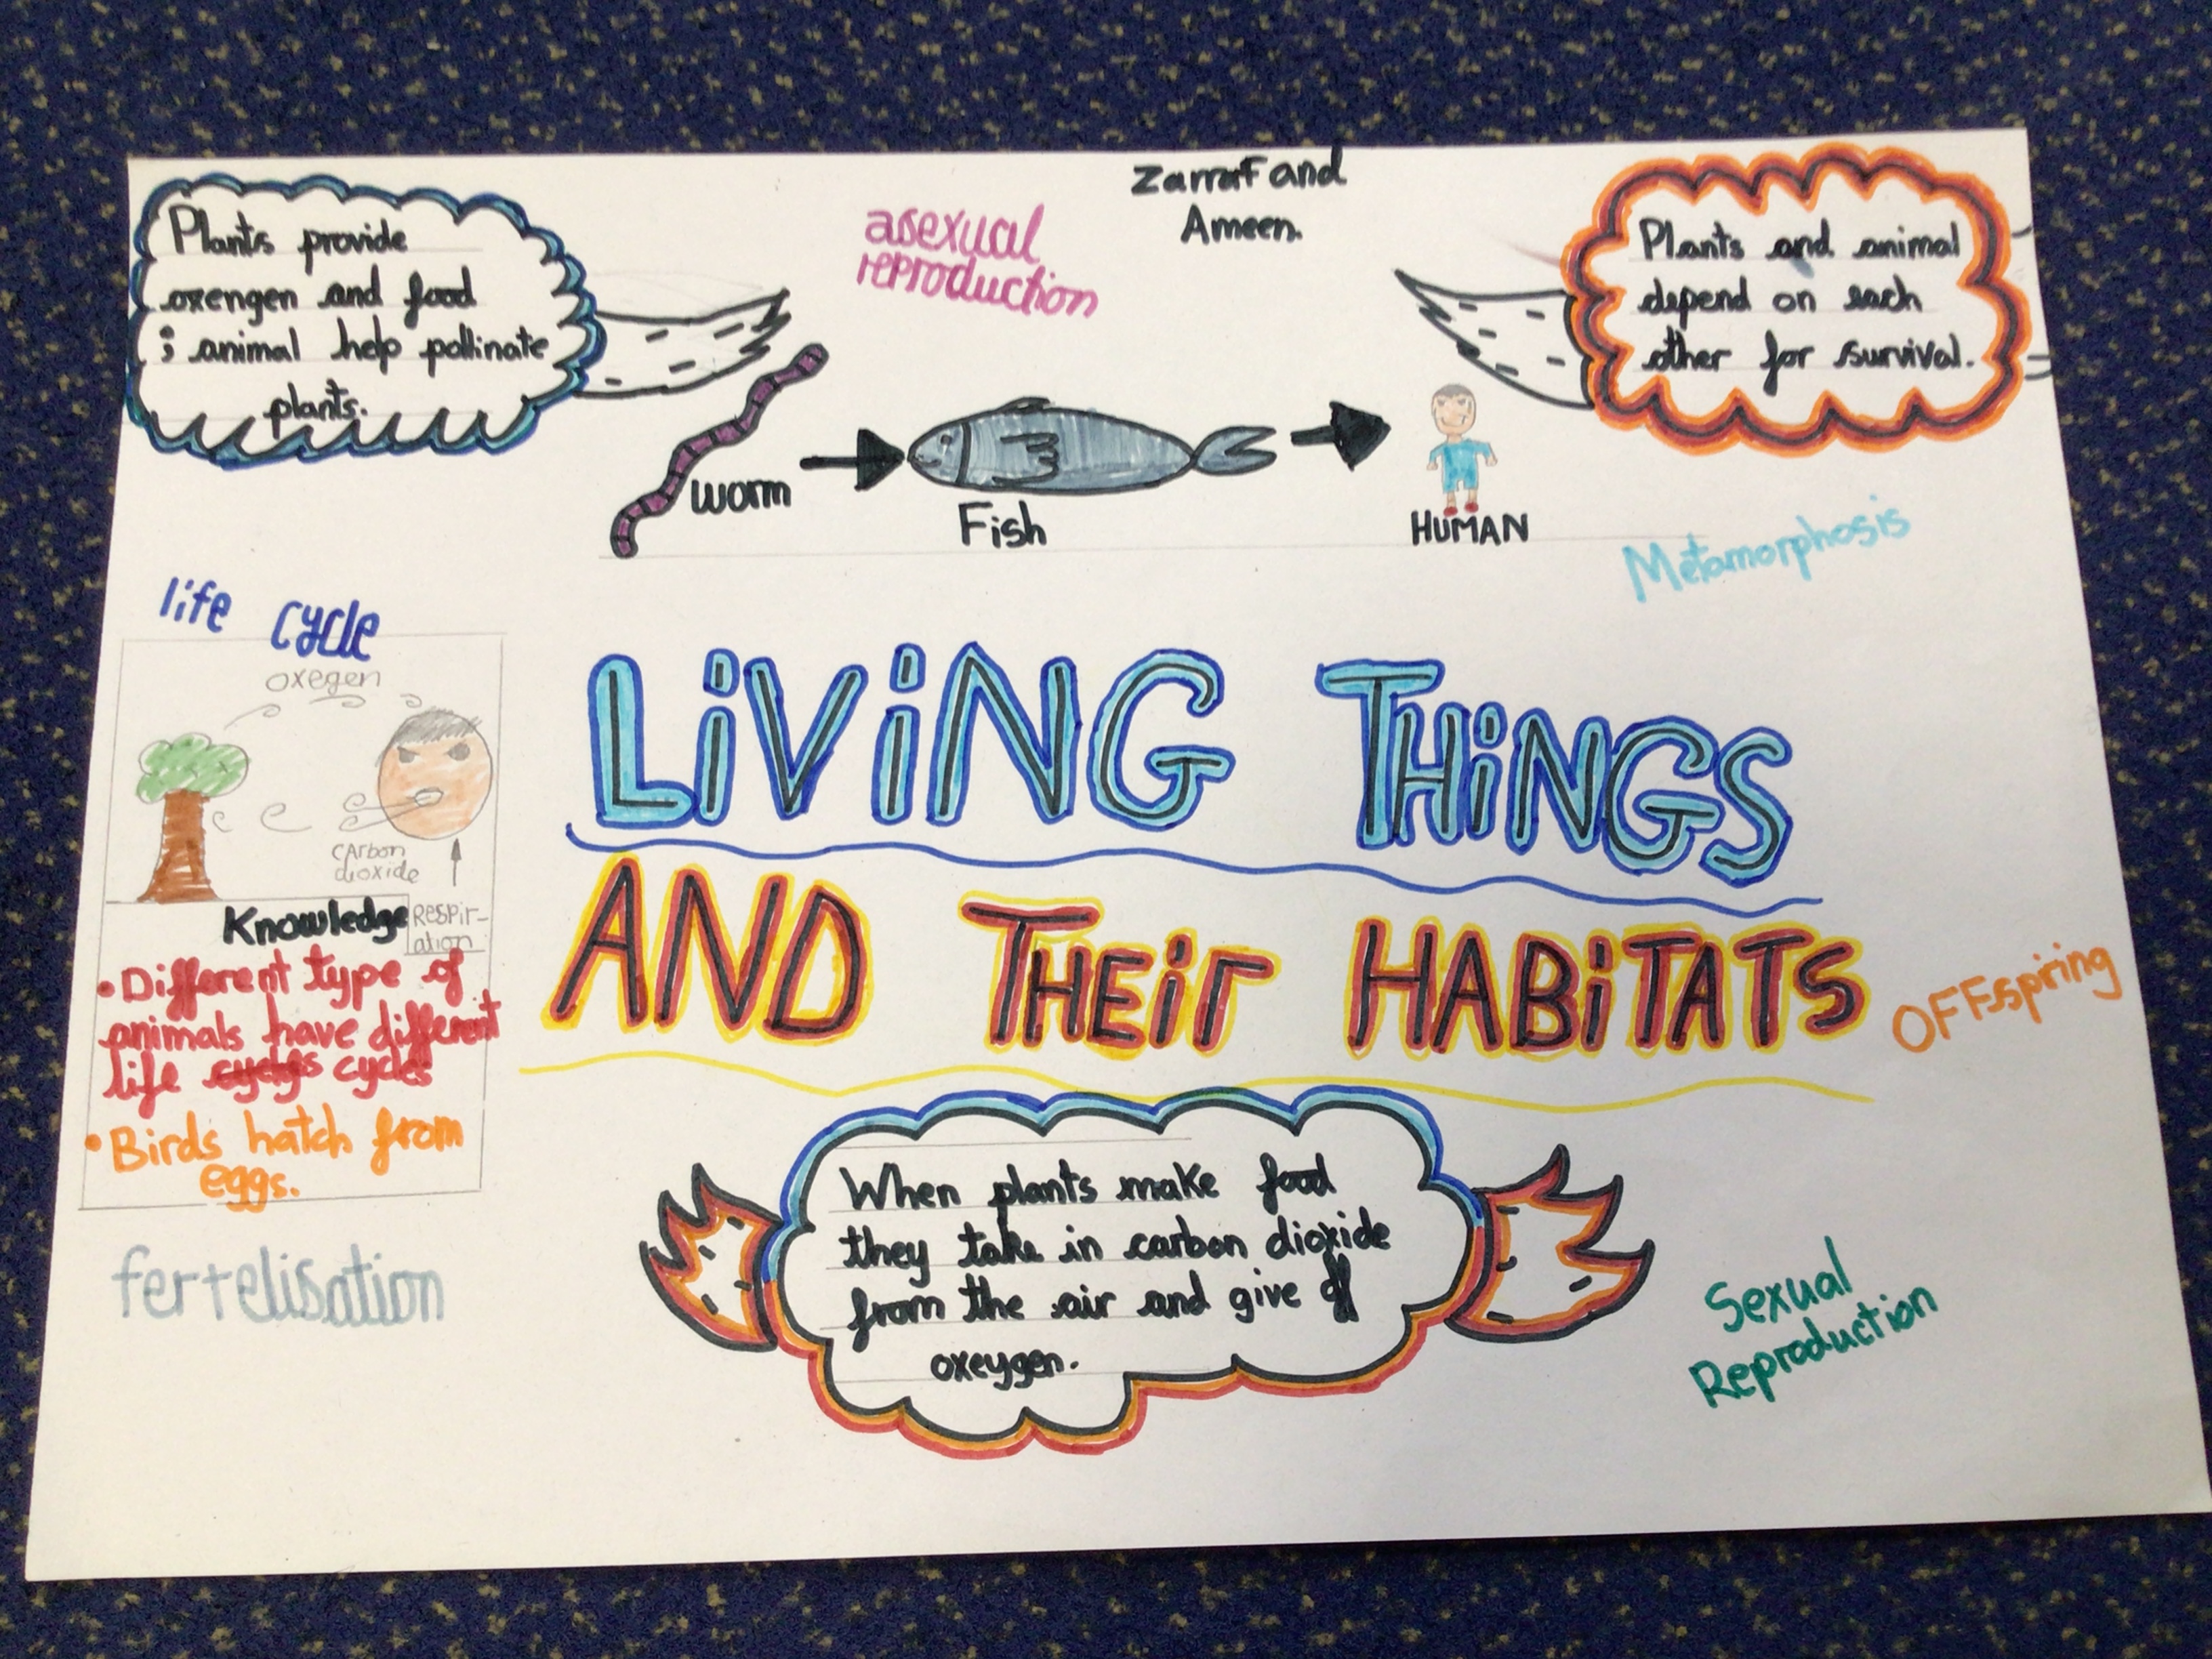 Zarraf and
Ameen.
Plants provide
oxengen and food
; animal help pollinate
plants.
asexual
reproduction
Plants and animal
depend on each
other for survival.
worm
Fish
HUMAN
Metamorphosis
life cycle
oxegen
carbon
dioxide
Respir-
ation
Knowledge
• Different type of
animals have different
life cycles cycles
• Birds hatch from
eggs.
LiViNG THiNGS
AND THEir HABiTATS
OFFspring
When plants make food
they take in carbon dioxide
from the air and give of
oxeygen.
fertelisation
Sexual
Reproduction